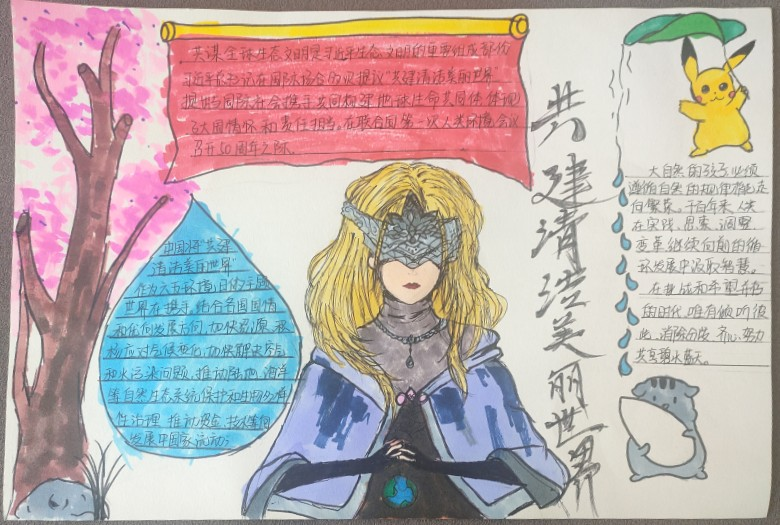 共谋全球生态文明是习近平生态文明的重要组成部份
习近平总书记在国际场合多次提议"共建清洁美丽世界"
提世与国际社会携手共同构建地球生命共同体 体现
了大国情怀和责任担当。在联合国第一次人类环境会议
召开50周年之际
共建清洁美丽世界
中国将"共建
清洁美丽世界"
作为六五环境日的主题
世界在携手,结合各国国情
和优先发展方向,加快能源
极应对气候变化,加快解决大气
和水污染问题,推动陆地、海洋
等自然生态系统保护和生物多样
性治理 推动资金、技术等向
发展中国家流动
大自然的孩子必须
遵循自然的规律才能走
向繁荣。千百年来人类
在实践、思索、调整
变革继续向前的循
环发展中汲取智慧。
在挑战和希望并存
的时代,唯有倾听彼
此,消除分歧 齐心努力
共享碧水蓝天。